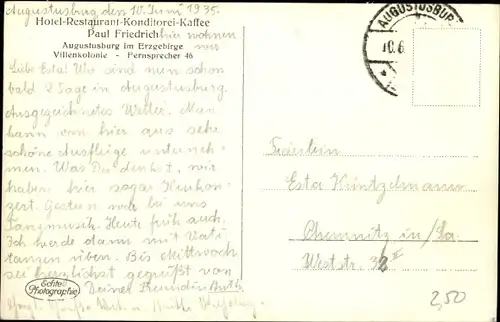 Augustusburg den 10. Juni 1935.
Hotel-Restaurant-Konditorei-Kaffee
Paul Friedrich hier wohnen
Augustusburg im Erzgebirge wir
Villenkolonie - Fernsprecher 46
Liebe Esta! Wir sind nun schon
bald 2 Tage in Augustusburg.
Ausgezeichnetes Wetter. Man
kann von hier aus sehr
schöne Ausflüge unterneh-
men. Was Du denkst, wir
haben hier sogar Kurkon-
zert. Gestern war bei uns
Tanzmusik. Heute früh auch.
Ich werde dann mit Vati
tanzen üben. Bis Mittwoch
sei herzlichst gegrüßt von
Deiner Freundin Ruth.
Echte
Photographie
AUGUSTUSBURG
10.6.
Fräulein
Esta Küntzelmann
Chemnitz in/Sa.
Weststr. 32 II
2,50